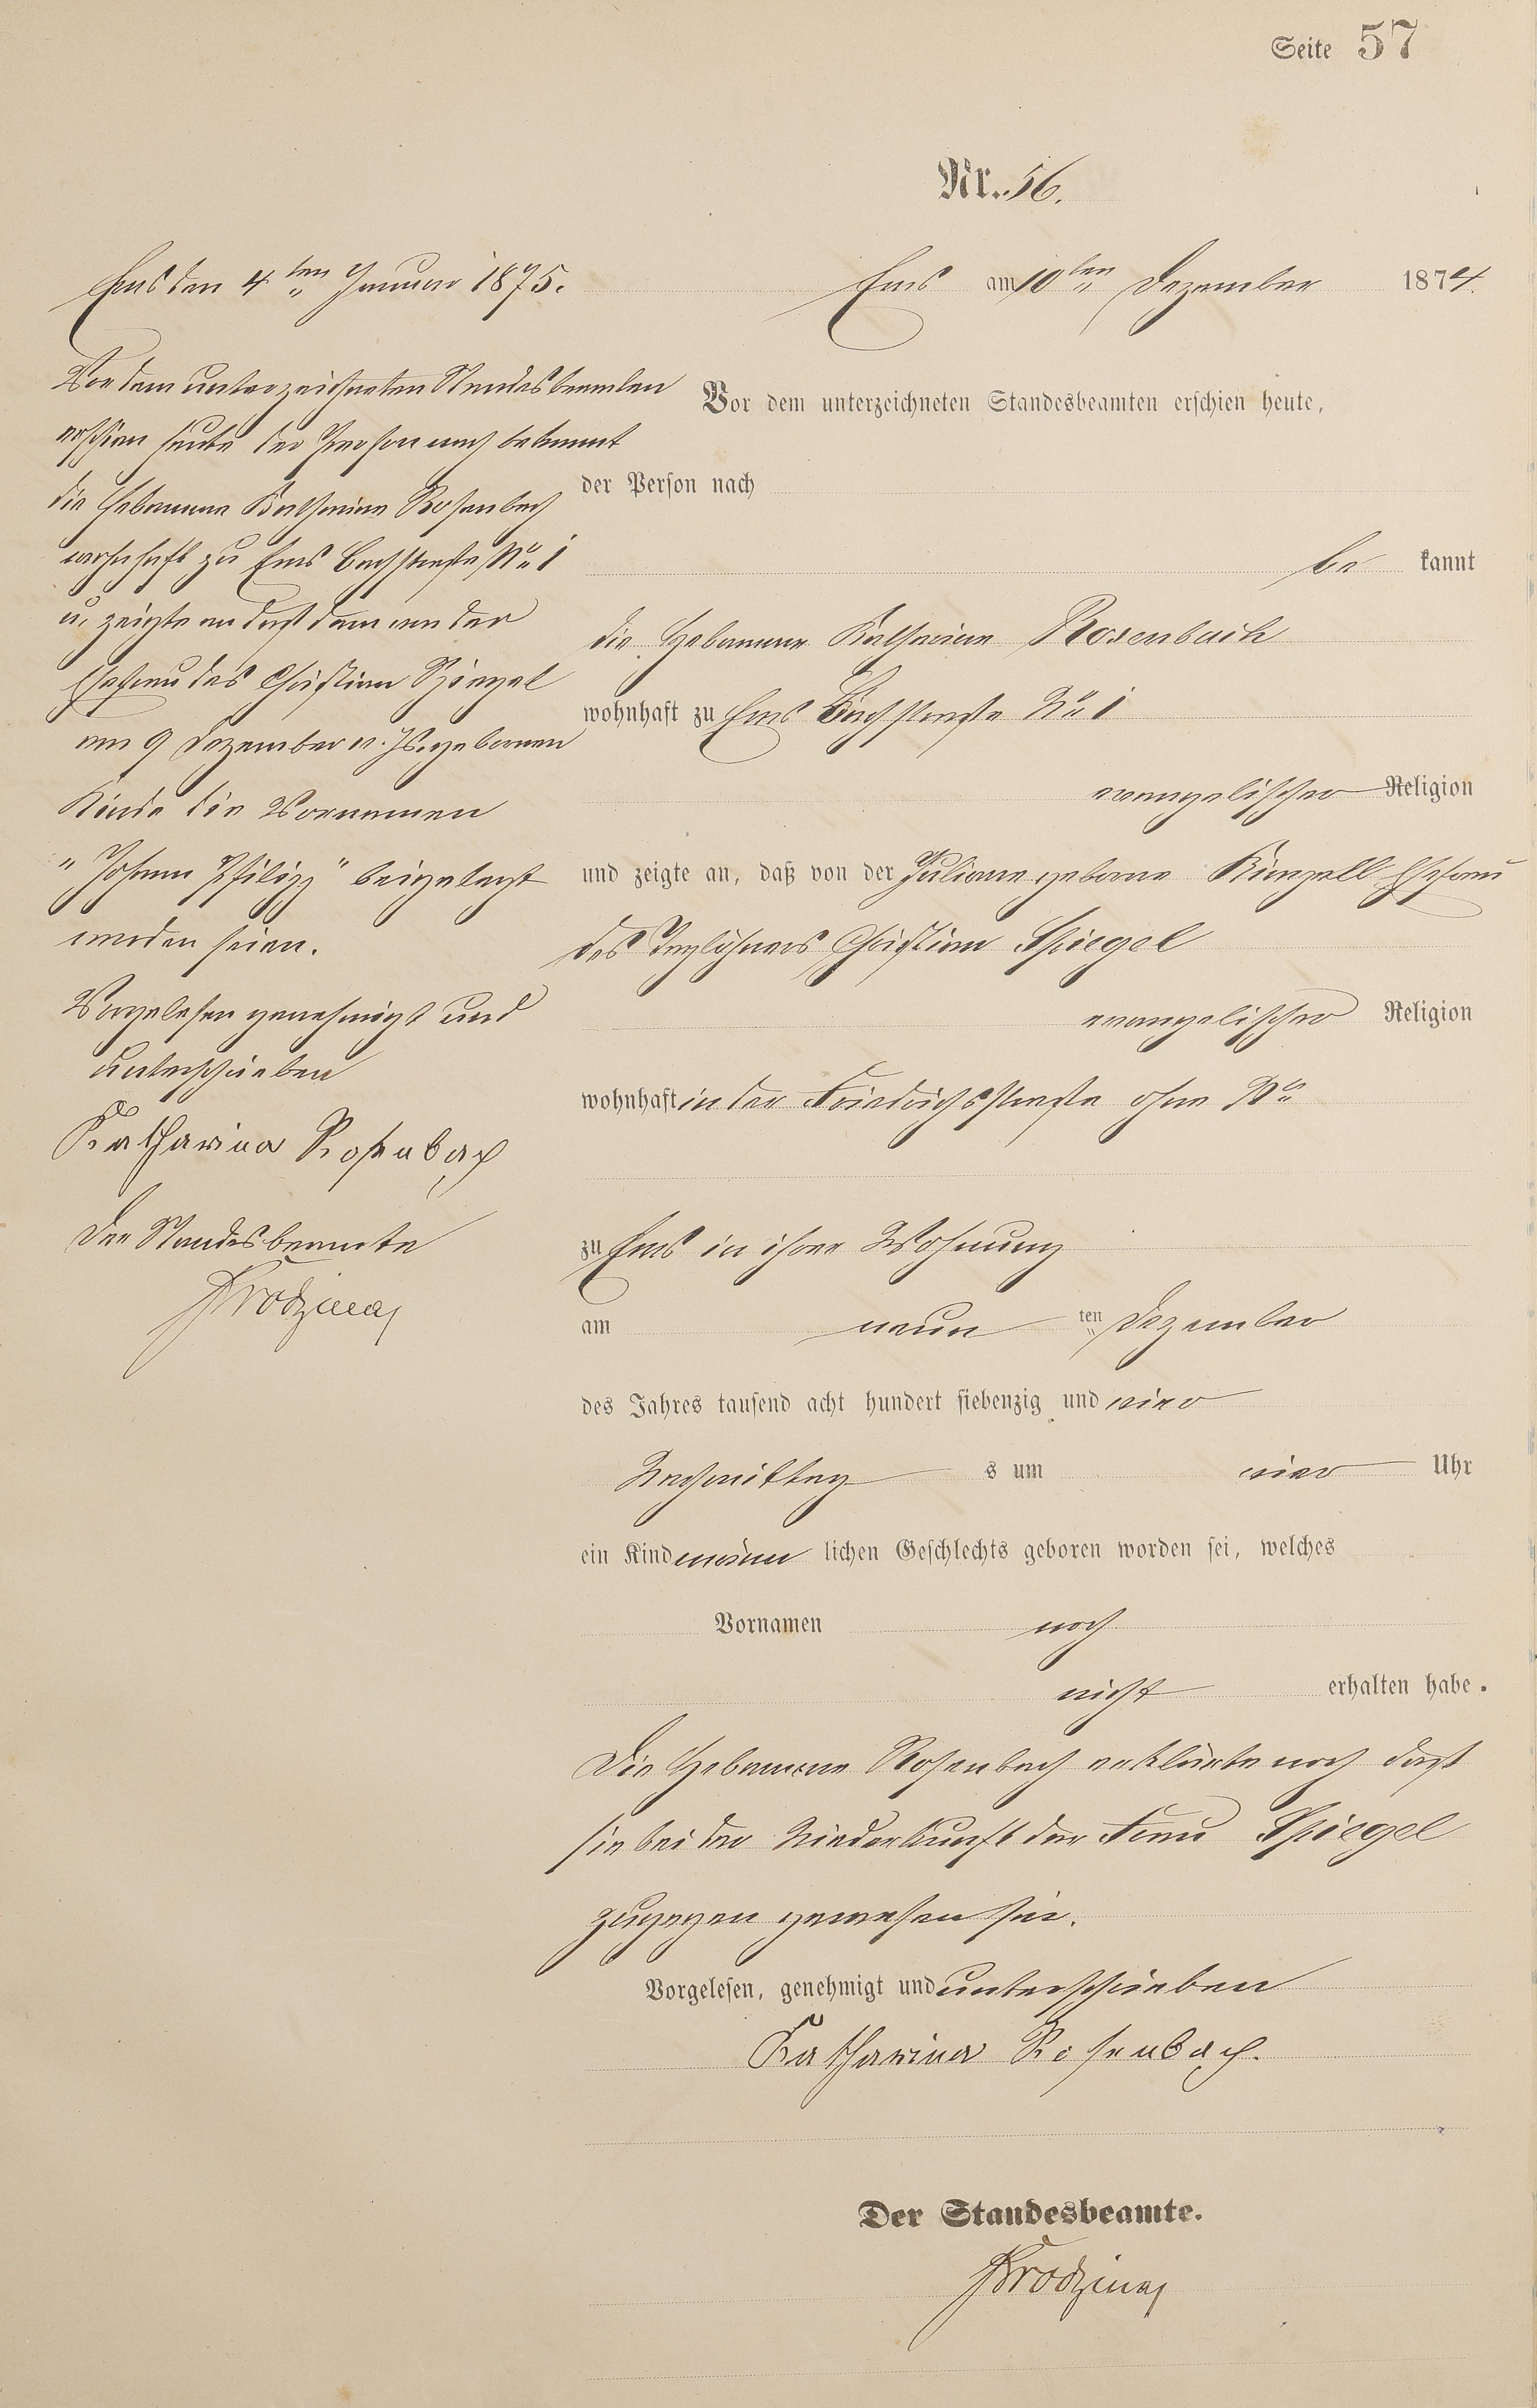 Seite 57
Nr. 56.
Ems am 10ten Dezember 1874.
Vor dem unterzeichneten Standesbeamten erschien heute,
der Person nach
be kannt
die Hebamme Katharine Rosenbach
wohnhaft zu Ems Bachstraße No 1
evangelischer Religion
und zeigte an, daß von der Juliane geborne Künzell Ehefrau
des Taglöhners Christian Spiegel
evangelischer Religion
wohnhaft in der Friedrichsstraße ohne No
zu Ems in ihrer Wohnung
am neun ten Dezember
des Jahres tausend acht hundert siebenzig und vier
Nachmittag s um vier Uhr
ein Kind männ lichen Geschlechts geboren worden sei, welches
Vornamen noch
nicht erhalten habe.
Die Hebamme Rosenbach erklärte noch daß
sie bei der Niederkunft der Frau Spiegel
zugegen gewesen sei.
Vorgelesen, genehmigt und unterschrieben
Katharina Rosenbach.
Der Standesbeamte.
Ems den 4ten Januar 1875.
Vor dem unterzeichneten Standesbeamten
erschien heute der Person nach bekannt
die Hebamme Katharine Rosenbach
wohnhaft zu Ems Bachstraße No 1
u. zeigte an daß dem von der
Ehefrau des Christian Spiegel
am 9 Dezember v. Js. gebornen
Kinde die Vornamen
"Johann Philipp" beigelegt
worden seien.
Vorgelesen genehmigt und
unterschrieben
Katharina Rosenbach
Der Standesbeamte